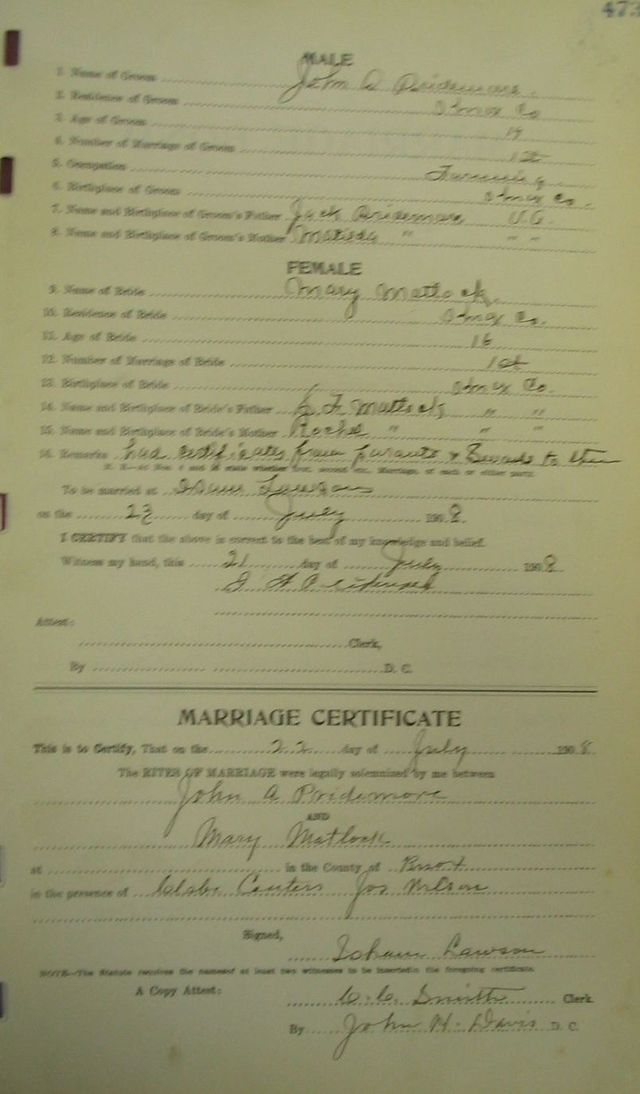 473
MALE
1. Name of Groom John A Pridemore
2. Residence of Groom Knox Co
3. Age of Groom 19
4. Number of Marriage of Groom 1st
5. Occupation Farming
6. Birthplace of Groom Knox Co.
7. Name and Birthplace of Groom's Father Jack Pridemore
8. Name and Birthplace of Groom's Mother Matilda " " "
FEMALE
9. Name of Bride Mary Matlock
10. Residence of Bride Knox Co.
11. Age of Bride 16
12. Number of Marriage of Bride 1st
13. Birthplace of Bride Knox Co.
14. Name and Birthplace of Bride's Father F Matlock " "
15. Name and Birthplace of Bride's Mother Rachel " " "
16. Remarks had certificates from parents &
To be married at Lawsons
on the 23 day of July 1908
I CERTIFY that the above is correct to the best of my knowledge and belief.
Witness my hand, this 21 day of July 1908
Attest:
Clerk,
By D. C.
MARRIAGE CERTIFICATE
This is to Certify, That on the 22 day of July 1908
The RITES OF MARRIAGE were legally solemnized by me between
John A Pridemore
AND
Mary Matlock
at in the County of Knox
in the presence of Jos Wilson
Signed,
Lawson
NOTE—The Statute requires the names of at least two witnesses to be inserted in the foregoing certificate.
A Copy Attest: C. C. Smith Clerk
By John H. Davis D. C.